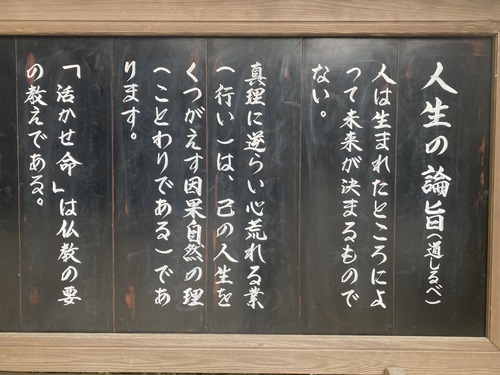 人生の論旨(道しるべ)
人は生まれたところによ
って未来が決まるもので
ない。
真理に逆らい心荒れる業
(行い)は、己の人生を
くつがえす因果自然の理
(ことわりである)であ
ります。
「活かせ命」は仏教の要
の教えである。